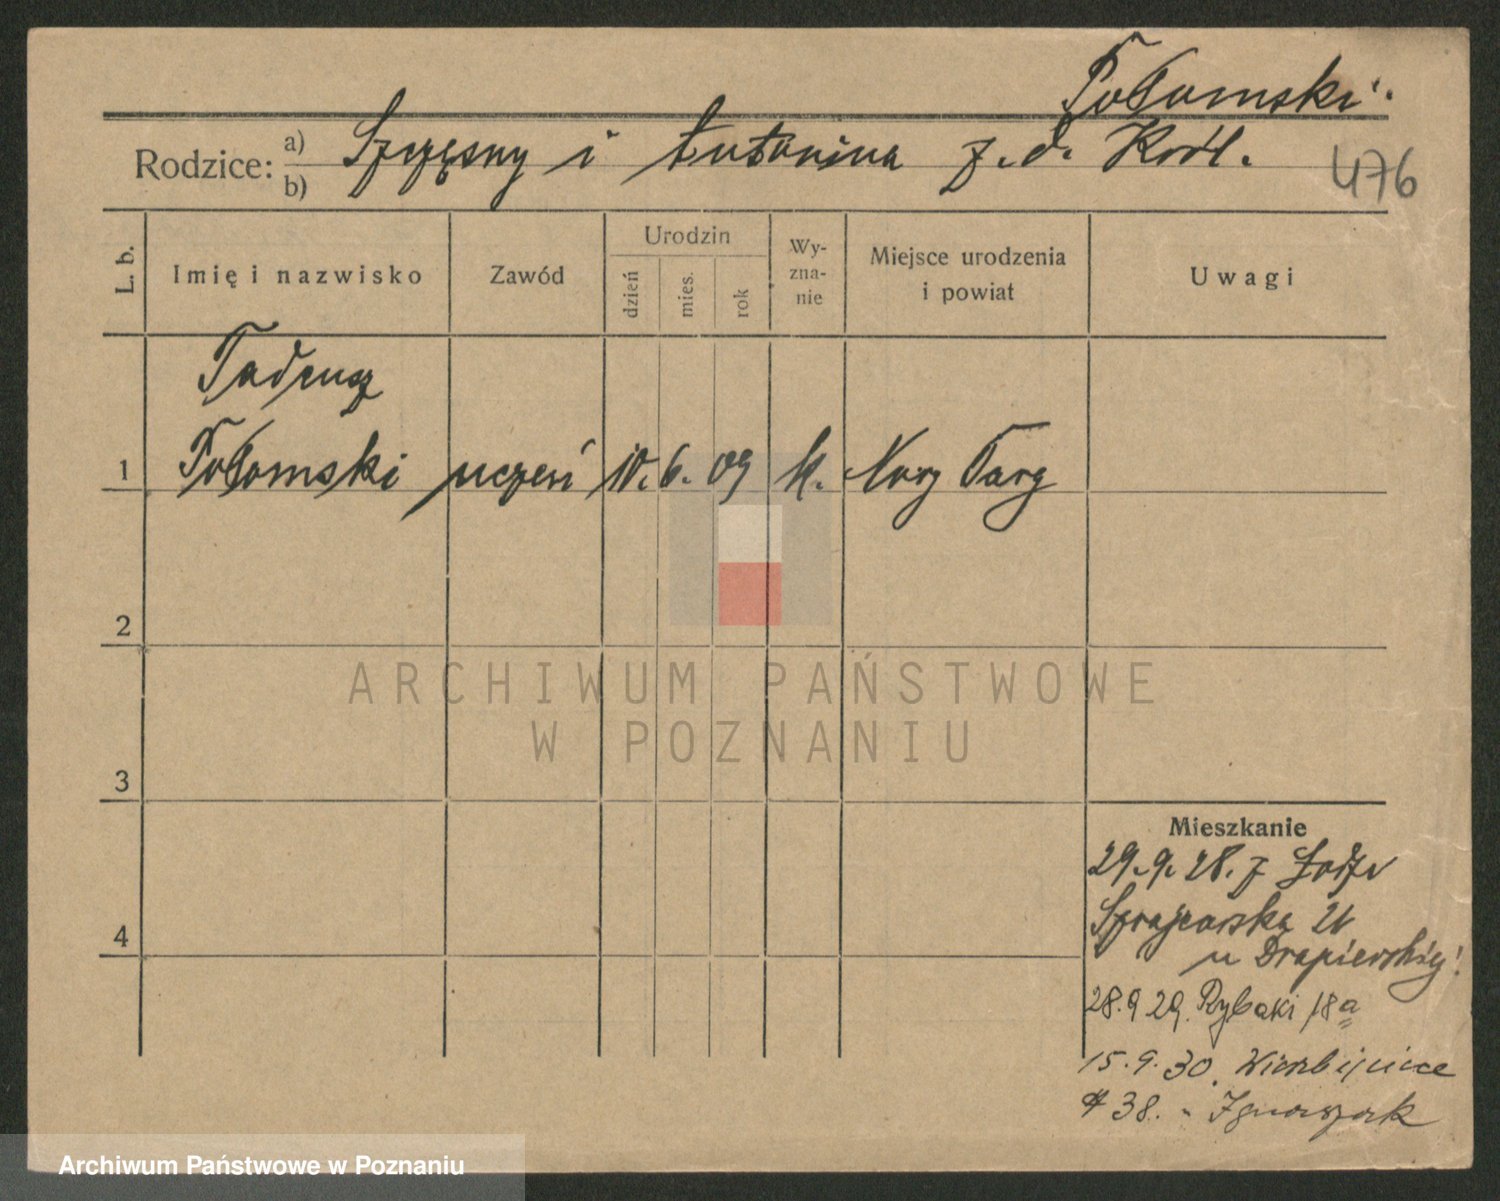 Potomski.
Rodzice: a) Szczęsny i Antonina z. d. Król.
b)
476
L. b.
Imię i nazwisko
Zawód
Urodzin
dzień
mies.
rok
Wy-
zna-
nie
Miejsce urodzenia
i powiat
Uwagi
Tadeusz
1 Potomski uczeń 10. 6. 09 k. Nowy Targ
2
3
4
ARCHIWUM PAŃSTWOWE
W POZNANIU
Mieszkanie
29.9.28. z Łodzi
21
u Drapierskiej
28.9 29. Rybaki 18a
15.9.30. Wierzbięcice
38. - Ignaszak
Archiwum Państwowe w Poznaniu